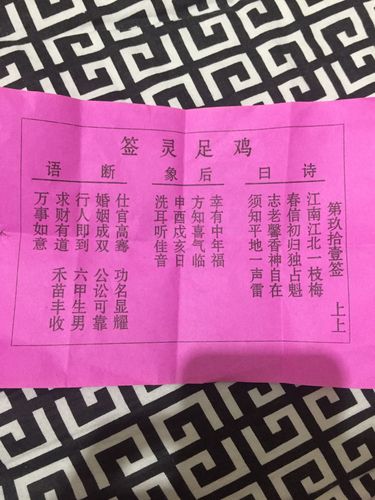 鸡足灵签
第玖拾壹签 上上
诗曰
江南江北一枝梅
春信初归独占魁
志老馨香神自在
须知平地一声雷
后象
幸有中年福
方知喜气临
申酉戌亥日
洗耳听佳音
断语
仕官高骞 功名显耀
婚姻成双 公讼可靠
行人即到 六甲生男
求财有道 禾苗丰收
万事如意